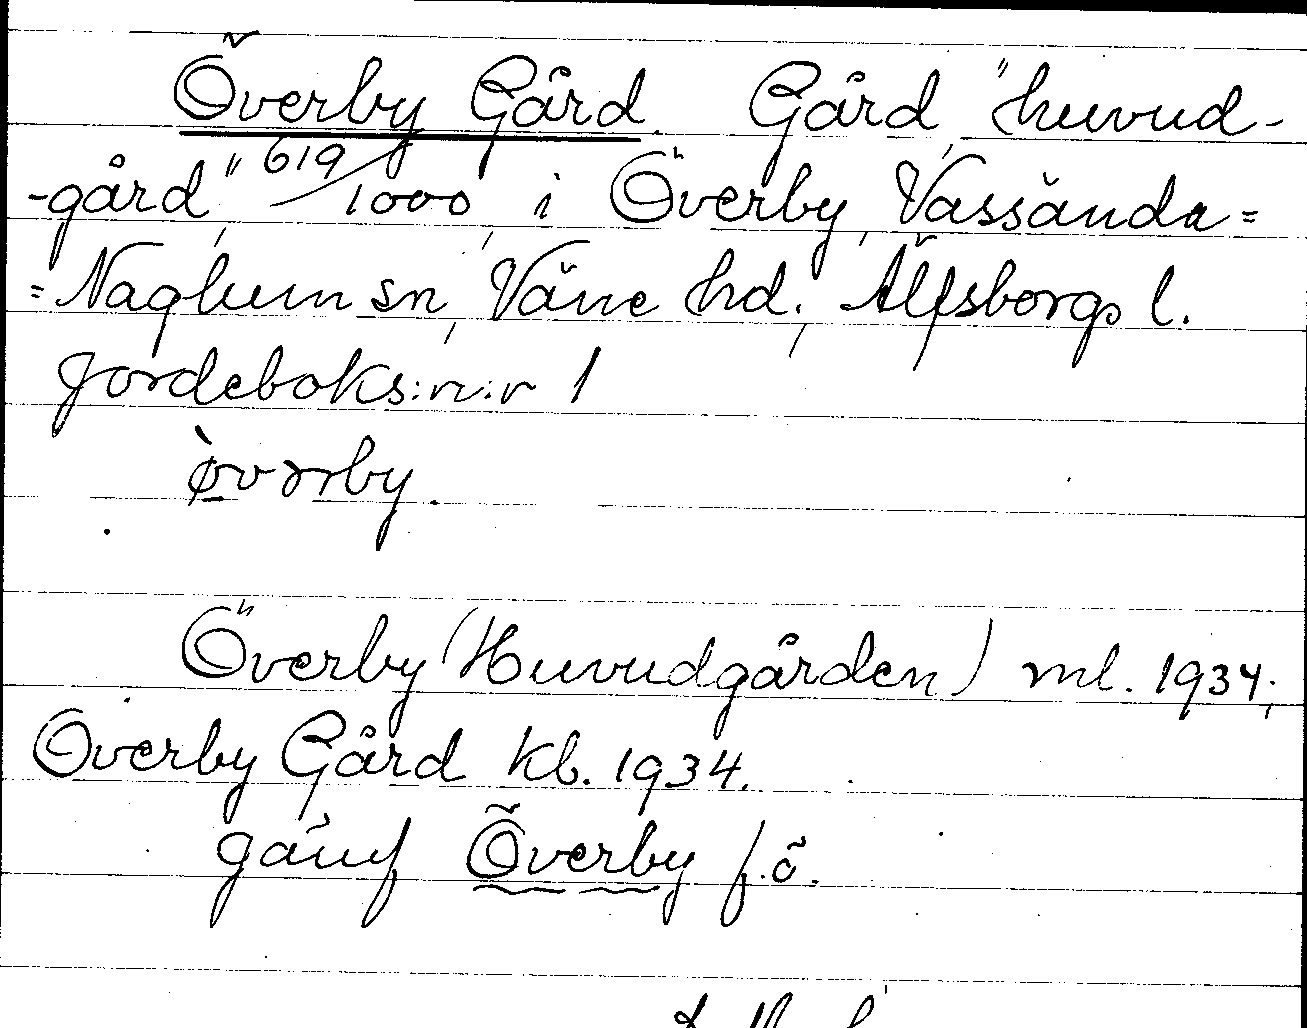 Överby Gård. Gård, "huvud-
-gård", 619/1000, i Överby, Vassända=
=Naglum sn, Väne hd., Älfsborgs l.
Jordeboks:n:r 1
Överby (Huvudgården) ml. 1934;
Överby Gård kb. 1934.
jämf Överby f.ö.